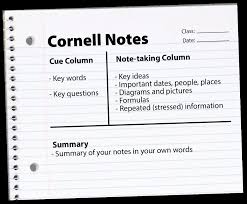 Class:
Date:
Cornell Notes
Cue Column
- Key words
- Key questions
Note-taking Column
- Key ideas
- Important dates, people, places
- Diagrams and pictures
- Formulas
- Repeated (stressed) information
Summary
- Summary of your notes in your own words